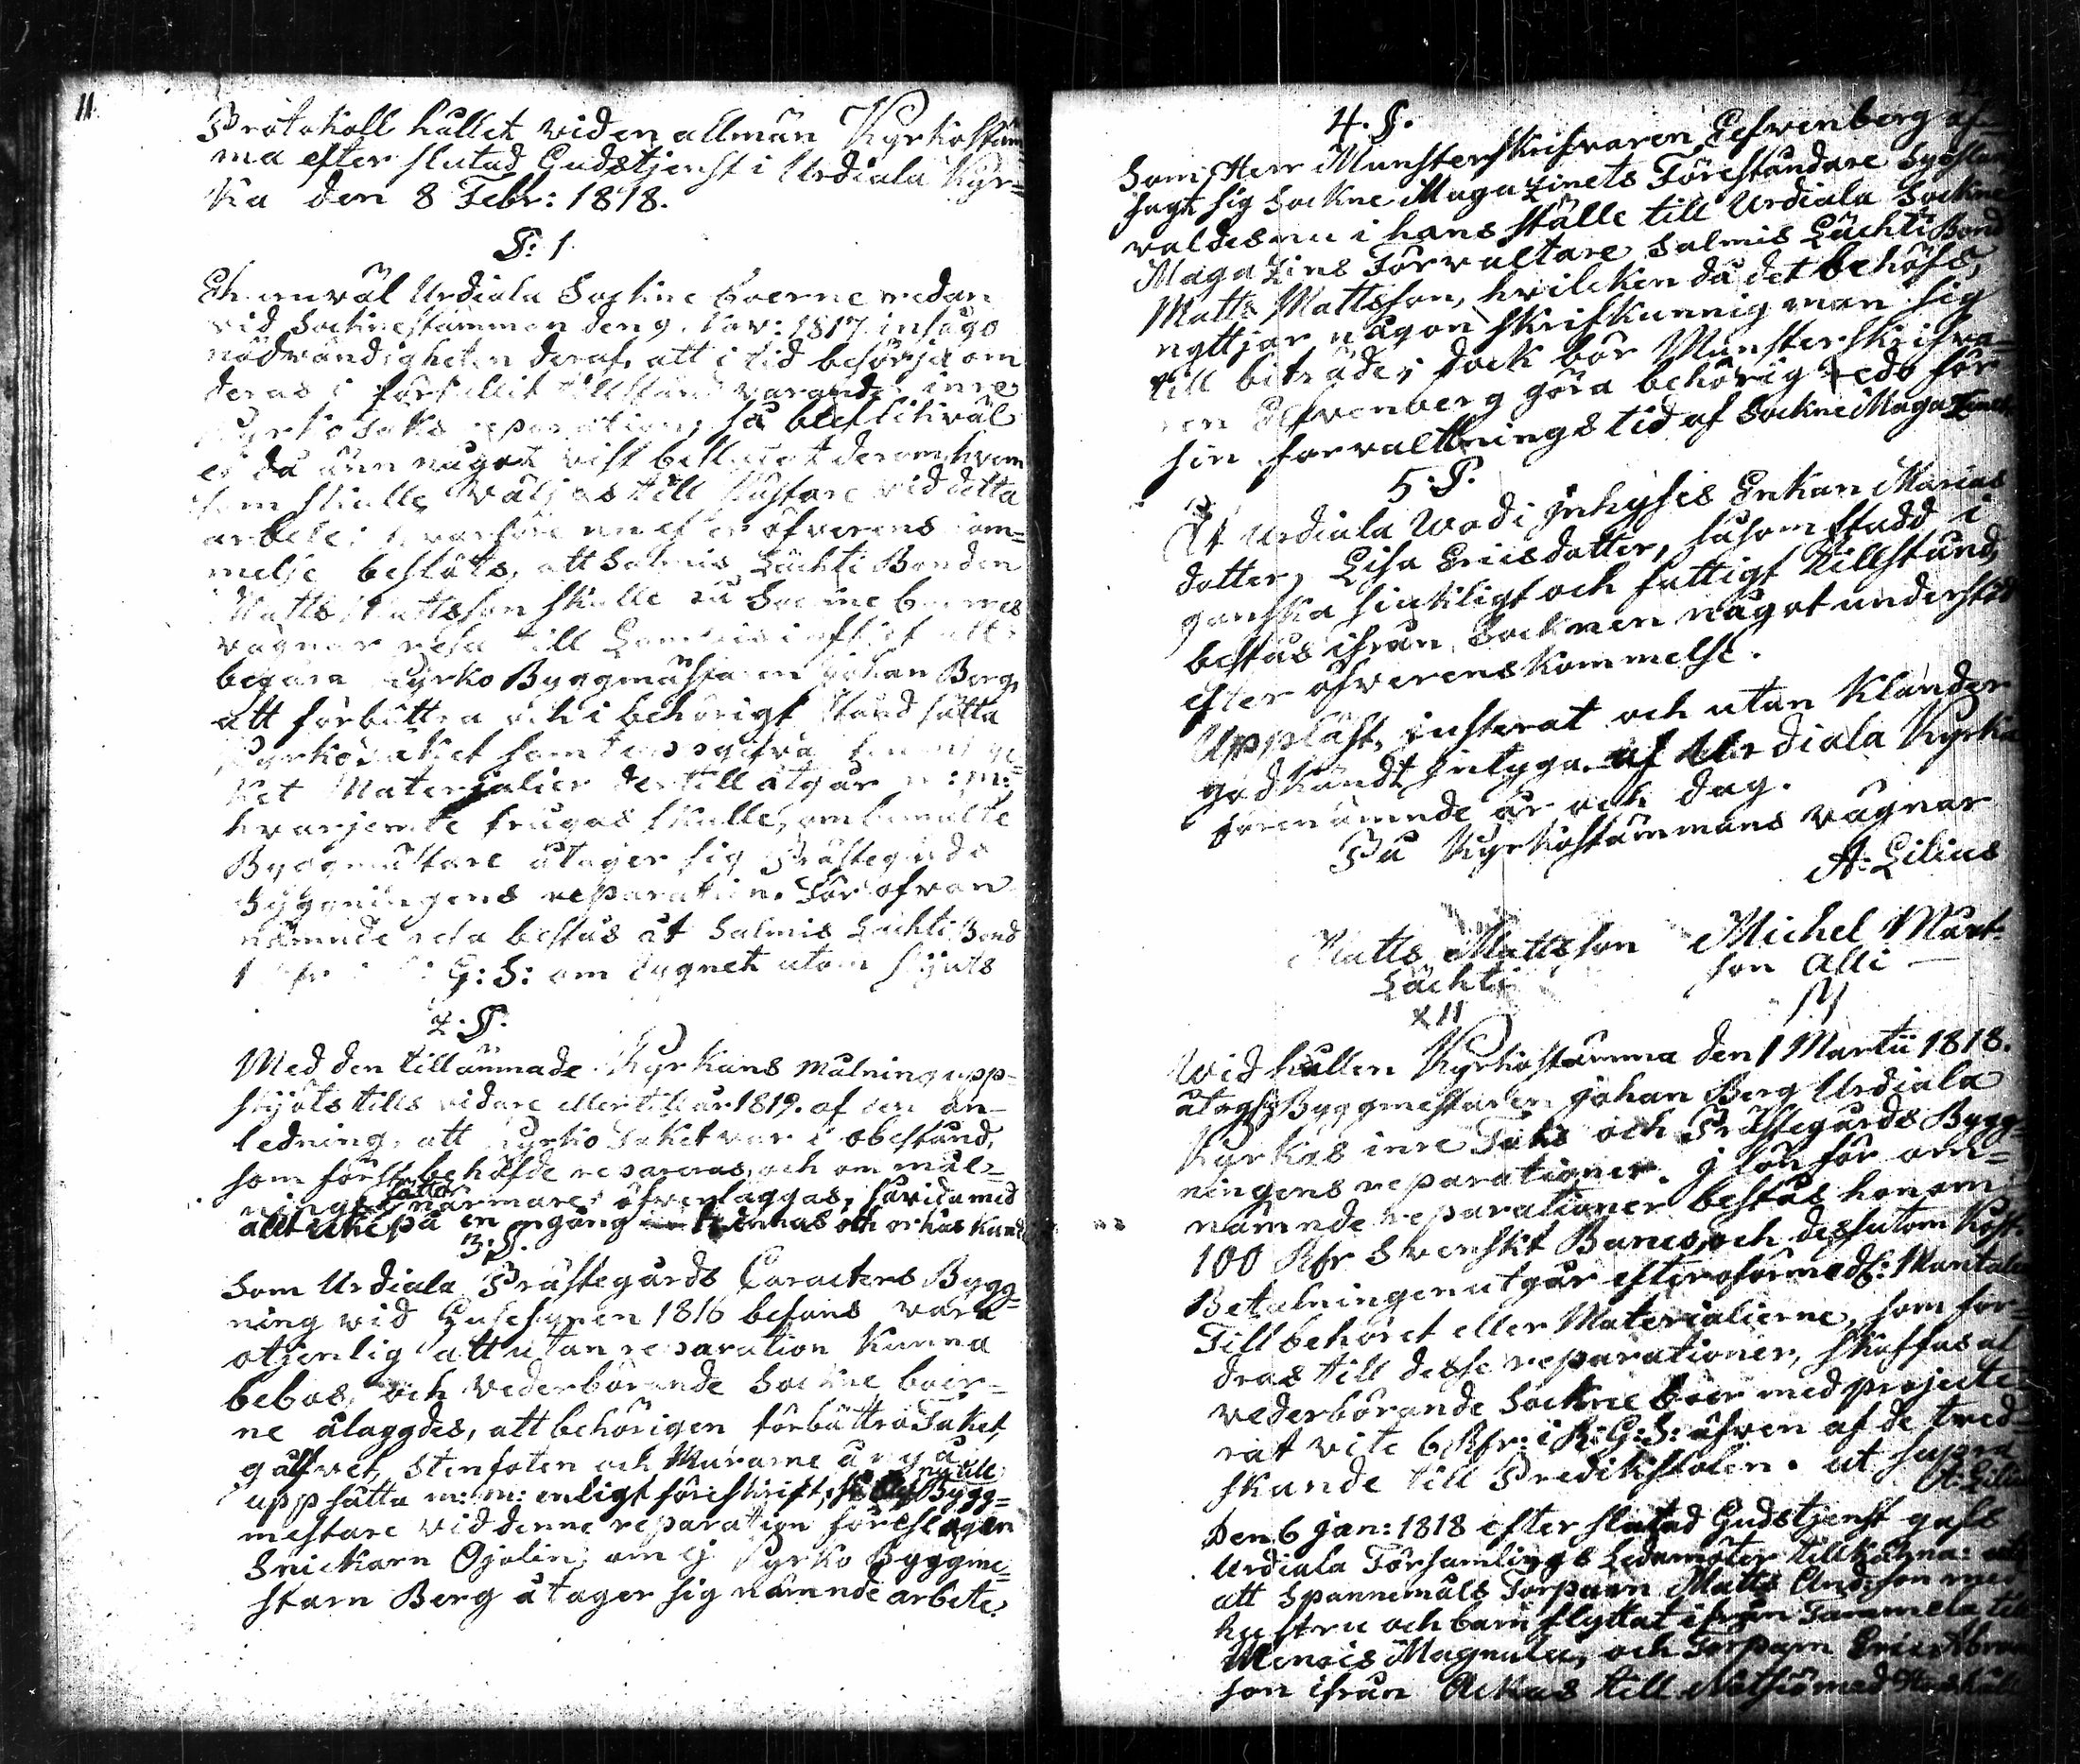 11.
Protokoll hållet vid en allmän Kyrkostäm=
ma efter slutad Gudstjenst i Urdiala Kyr=
ka den 8 Febr: 1818.
§: 1
Ehuruväl Urdiala Sockne boerne redan
vid Socknestämman den 9. Nov: 1817. insågo
nödvändigheten deraf, att i tid besörja om
deras i förfallit tillstånd varande inre
Kyrko Taks reparation, så blef likväl
ej då änn något vist beslutat derom hvem
som skulle väljas till Mästare vid detta
arbete; hvarföre nu efter öfverens kom=
melse beslöts, att Salmis Lächti Bonden
Matts Mattsson skulle på Sockne boernes
vägnar resa till för att
begära Kyrko Byggmästaren Johan Berg,
att förbättra och i behörigt stånd sätta
Kyrkotaket samt uppgifva huru my=
ket Materjalier dertill åtgår m: m:,
hvarjemte frågas skulle, om bemälte
Byggmästare åtager sig Prästegårds
Byggningens reparation. För ofvan
nämnde resa bestås åt Salmis Lächti Bond
1 G: S: om dygnet utom skjuts
2. §.
Med den tillämnade Kyrkans målning upp=
skjöts tills vidare eller till år 1819. af den an=
ledning, att Kyrko Taket var i obestånd,
som först behöfde repareras, och om mål=
nings sätter närmare öfverläggas, såvida med
allt slikt på en engång hinnas och orkas kund
3: §.
Som Urdiala Prästegårds Caracters Bygg=
ning vid Husesynen 1816 befans vara
otjenlig att utan reparation kunna
bebos, och vederbörande Sockne boer=
ne ålaggdes, att behörigen förbättra Taket,
gålfvet, Stenfoten och Murarne
uppsätta m: m: enligt föreskrift, Bygg=
mestare vid denne reparation föreslogen
Snickarn Öjelin, om ej Kyrko Byggme=
starn Berg åtager sig nämnde arbete.
4. §.
Som Herr Munsterskrifvaren Elfvenberg af=
sagt sig Sockne Magazinets Föreståndare Syssla
valdes nu i hans ställe till Urdiala Sockne
Magazins Förvaltare Salmis Lächti Bond
Matts Mattsson, hvilcken då det behöfs,
nyttjar någon skrifkunnig man sig
till biträde; dock bör Munsterskrifva=
ren Elfvenberg göra behörig redo för
sin förvalttnings tid af Sockne Magazinet.
5. §.
At Urdiala Wodi Jnhyses Enkan Marias
dotter, Lisa Ericsdotter, såsom stadd i
ganska siukligt och fattigt tillstånd,
bestås ifrån Socknen något understöd
efter öfverenskommelse.
Uppläst, justerat och utan klander
godkändt intygar af Urdiala Kyrka
förenämnde år och dag.
På Kyrkostämmans vägnar
A: Lilius
Matts Mattsson Michel Mårt=
Lächti son Alli
XII
Wid hållen Kyrkostämma den 1 Martii 1818.
åtog sig Byggmestaren Johan Berg Urdiala
Kyrkas inre Taks och Prästegårds Bygg=
ningens reparationer. J lön för om=
nämnde reparationer bestås honom
100 Rdr Svenskt Banco, och dessutom Kost.
Betalningen utgår efter Mantalen
Tillbehöret eller Materialierne, som for=
dras till desse reparationer, skaffas af
vederbörande Sockne boer med projecte=
rat vite 6 Rdr: i R: G: S: äfven af de tred=
skande till Predikstolen. ut supra
A: Lilius
Den 6 Jan: 1818 efter slutad Gudstjenst gafs
Urdiala Församlings Ledamöter tillkänna:
att Spannemåls Torparn Matts Andersson med
hustru och barn flyttat ifrån Tammela till
Menois Magnula, och Torparn Eric Abra
son ifrån Ackas till med